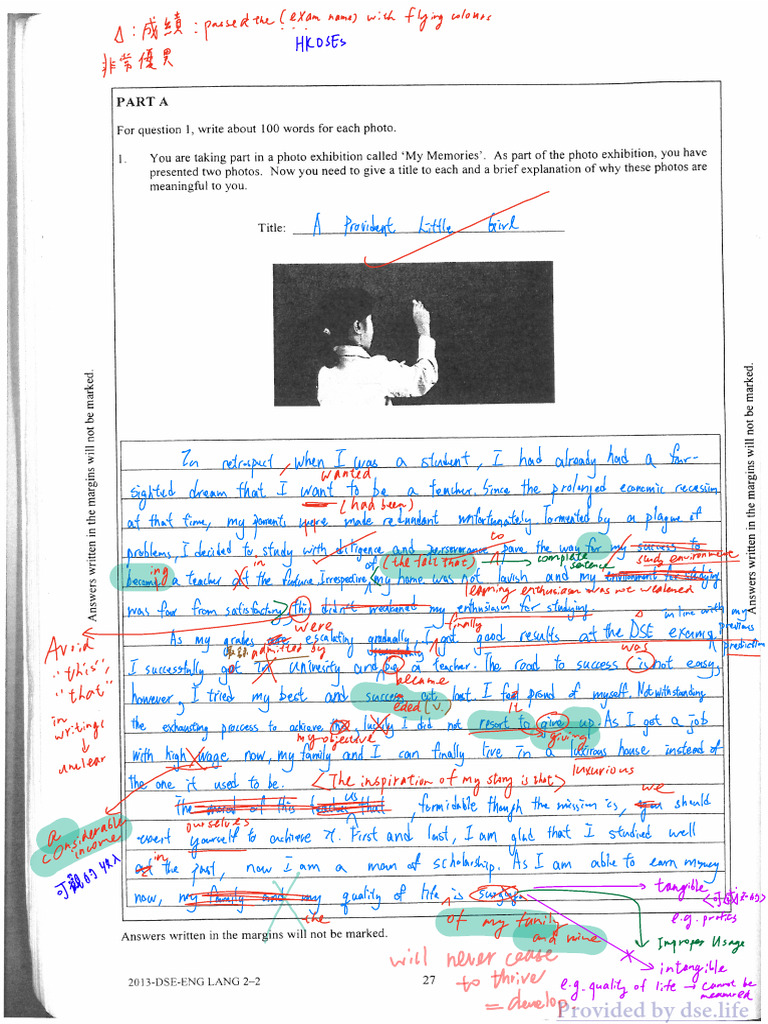 △:成績:passed the (exam name) with flying colours
HKDSEs
非常優異
PART A
For question 1, write about 100 words for each photo.
1. You are taking part in a photo exhibition called 'My Memories'. As part of the photo exhibition, you have
presented two photos. Now you need to give a title to each and a brief explanation of why these photos are
meaningful to you.
Title: A Provident Little Girl
In retrospect, when I was a student, I had already had a far-
wanted
sighted dream that I want to be a teacher. Since the prolonged economic recession
(had been)
at that time, my parents were made redundant unfortunately. Tormented by a plague of
problems, I decided to study with diligence and perseverance pave the way for my success to
to
complete sentence
study environment
ing
in
of (the fact that)
become a teacher at the future. Irrespective my home was not lavish and my environment for studying
learning enthusiasm was not weakened
was far from satisfactory, this didn't weakened my enthusiasm for studying.
in line with my previous prediction
were
finally
As my grades are escalating gradually, I got good results at the DSE exams,
admitted by
was
I successfully got in university and be a teacher. The road to success is not easy,
became
however, I tried my best and success at last. I feel proud of myself. Notwithstanding
eded (v.
the exhausting process to achieve luckily I did not resort to give up. As I got a job
my objective
giving
with high wage now, my family and I can finally live in a house instead of
luxurious
the one it used to be.
(The inspiration of my story is that)
us
we
The moral of this teaches that, formidable though the mission is, you should
ourselves
exert yourself to achieve it. First and last, I am glad that I studied well
in
at the past, now I am a man of scholarship. As I am able to earn money
now, my family and my quality of life is
the
of my family and mine
will never cease
to thrive
= develop
Avoid
"this",
"that"
in
writings
↓
unclear
a
considerable
income
可觀的收入
tangible
e.g. profits
Improper Usage
intangible
e.g. quality of life → cannot be measured
Answers written in the margins will not be marked.
Answers written in the margins will not be marked.
Answers written in the margins will not be marked.
2013-DSE-ENG LANG 2–2
27
Provided by dse.life